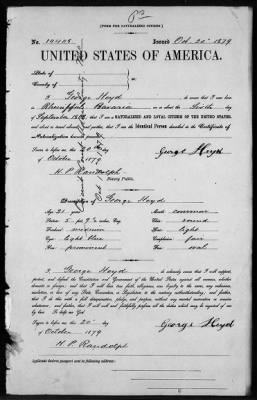 [FORM FOR NATURALIZED CITIZEN.]
No. 19408 Issued Oct. 20" 1879
UNITED STATES OF AMERICA.
State of
County of
I, George Heyd do swear that I was born
in Rheinpfalz Bavaria on or about the
of September that I am a NATURALIZED AND LOYAL CITIZEN OF THE UNITED
STATES, and that I am the Identical Person described in the Certificate of
Naturalization herewith presented.
Sworn to before me this 20th day
of October 1879
George Heyd
H. P. Randolph
Notary Public.
Description of George Heyd
Age: 21 years Mouth: common
Stature: 5 feet 9 ½ inches, Eng. Chin: round
Forehead: medium Hair: light
Eyes: light blue Complexion: fair
Nose: prominent Face: oval
I, George Heyd, do solemnly swear that I will support,
protect, and defend the Constitution and Government of the United States against all enemies, whether
domestic or foreign; and that I will bear true faith, allegiance, and loyalty to the same, any ordinance,
resolution, or law of any State, Convention, or Legislature to the contrary notwithstanding; and further,
that I do this with a full determination, pledge, and purpose, without any mental reservation or evasion
whatsoever; and further, that I will well and faithfully perform all the duties which may be required of
me by law: So help me God.
Sworn to before me this 20" day
of October 1879
George Heyd
H. P. Randolph
Applicant desires passport to be sent to following address: